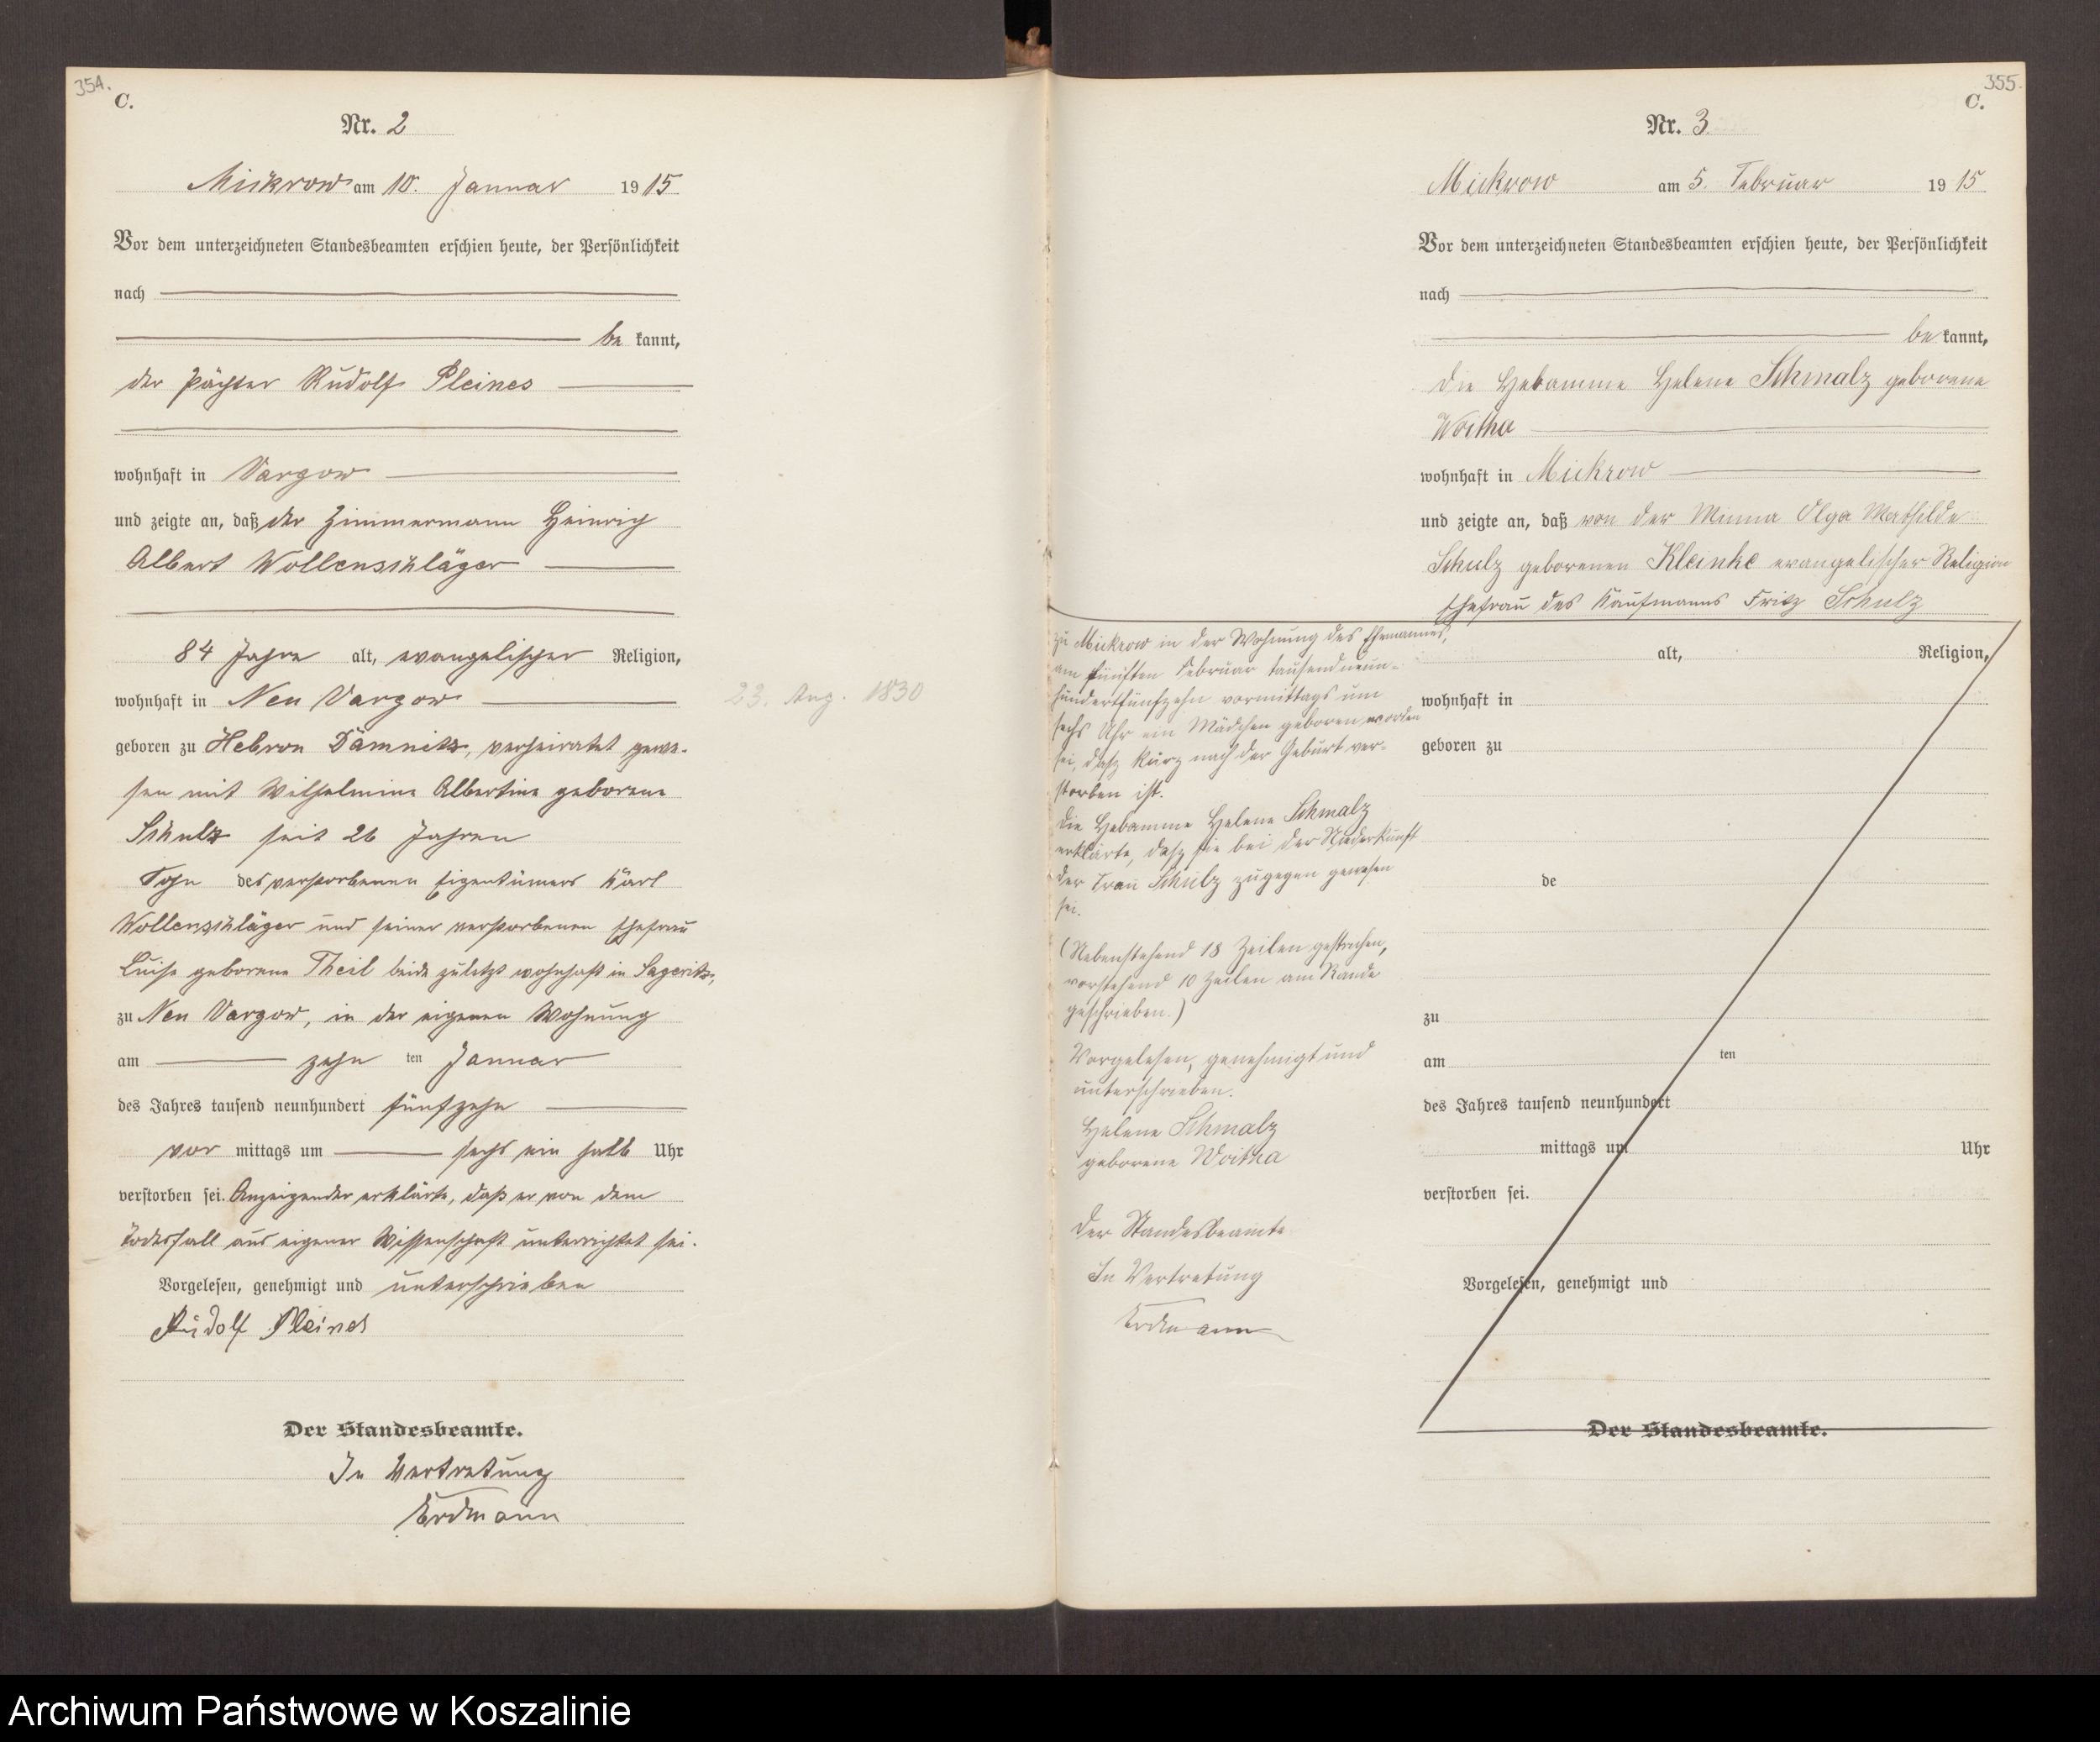 354.
C.
Nr. 2
Mickrow am 10. Januar 1915
Vor dem unterzeichneten Standesbeamten erschien heute, der Persönlichkeit
nach
bekannt,
der Pächter Rudolf Pleines
wohnhaft in Vargow
und zeigte an, daß der Zimmermann Heinrich
Albert Wollenschläger
84 Jahre alt, evangelischer Religion,
wohnhaft in Neu Vargow
23. Aug. 1830
geboren zu Hebron Damnitz, verheiratet gewe-
sen mit Wilhelmine Albertine geborene
Schulz seit 26 Jahren
Sohn des verstorbenen Eigentümers Karl
Wollenschläger und seiner verstorbenen Ehefrau
Luise geborene Theil beide zuletzt wohnhaft in Sageritz,
zu Neu Vargow, in der eigenen Wohnung
am zehn ten Januar
des Jahres tausend neunhundert fünfzehn
vor mittags um sechs ein halb Uhr
verstorben sei. Anzeigender erklärte, daß er von dem
Todesfall aus eigener Wissenschaft unterrichtet sei.
Vorgelesen, genehmigt und unterschrieben
Rudolf Pleines
Der Standesbeamte.
In Vertretung
Erdmann
355.
C.
Nr. 3
Mickrow am 5. Februar 1915
Vor dem unterzeichneten Standesbeamten erschien heute, der Persönlichkeit
nach
bekannt,
die Hebamme Helene Schmalz geborene
Woitha
wohnhaft in Mickrow
und zeigte an, daß von der Minna Olga Mathilde
Schulz geborenen Kleinke evangelischer Religion
Ehefrau des Kaufmanns Fritz Schulz
zu Mickrow in der Wohnung des Ehemannes,
am fünften Februar tausendneun-
hundertfünfzehn vormittags um
sechs Uhr ein Mädchen geboren worden
sei, dasz kurz nach der Geburt ver-
storben ist.
Die Hebamme Helene Schmalz
erklärte, dasz sie bei der Niederkunft
der Frau Schulz zugegen gewesen
sei.
(Nebenstehend 18 Zeilen gestrichen,
vorstehend 10 Zeilen am Rande
geschrieben.)
Vorgelesen, genehmigt und
unterschrieben.
Helene Schmalz
geborene Woitha
Der Standesbeamte
In Vertretung
Erdmann
alt, Religion,
wohnhaft in
geboren zu
de
zu
am ten
des Jahres tausend neunhundert
mittags um Uhr
verstorben sei.
Vorgelesen, genehmigt und
Der Standesbeamte.
Archiwum Państwowe w Koszalinie